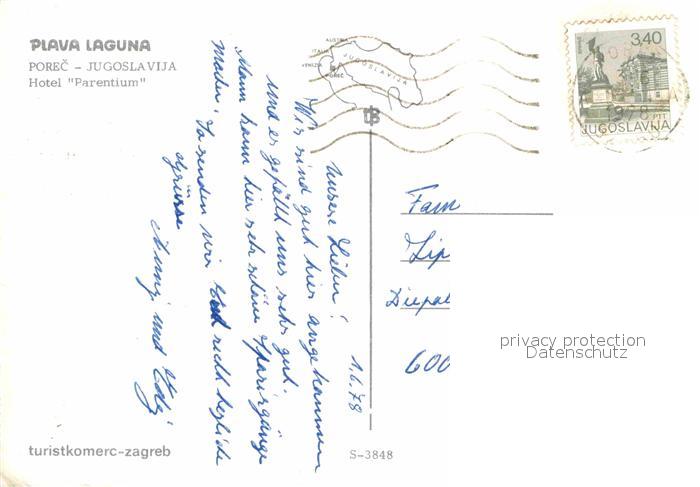 PLAVA LAGUNA
POREČ - JUGOSLAVIJA
Hotel "Parentium"
AUSTRIA
ITALIA
VENEZIA
POREČ
JUGOSLAVIJA
3,40
1978
PTT
JUGOSLAVIJA
1.6.78
Unsere Lieben!
Wir sind gut hier angekommen
und es gefällt uns sehr gut.
Mann kann hier sehr schöne Spaziergänge
machen. So senden wir Euch recht herzliche
Grüsse
und Edy
Fam
Lip
600
privacy protection
Datenschutz
turistkomerc-zagreb
S-3848